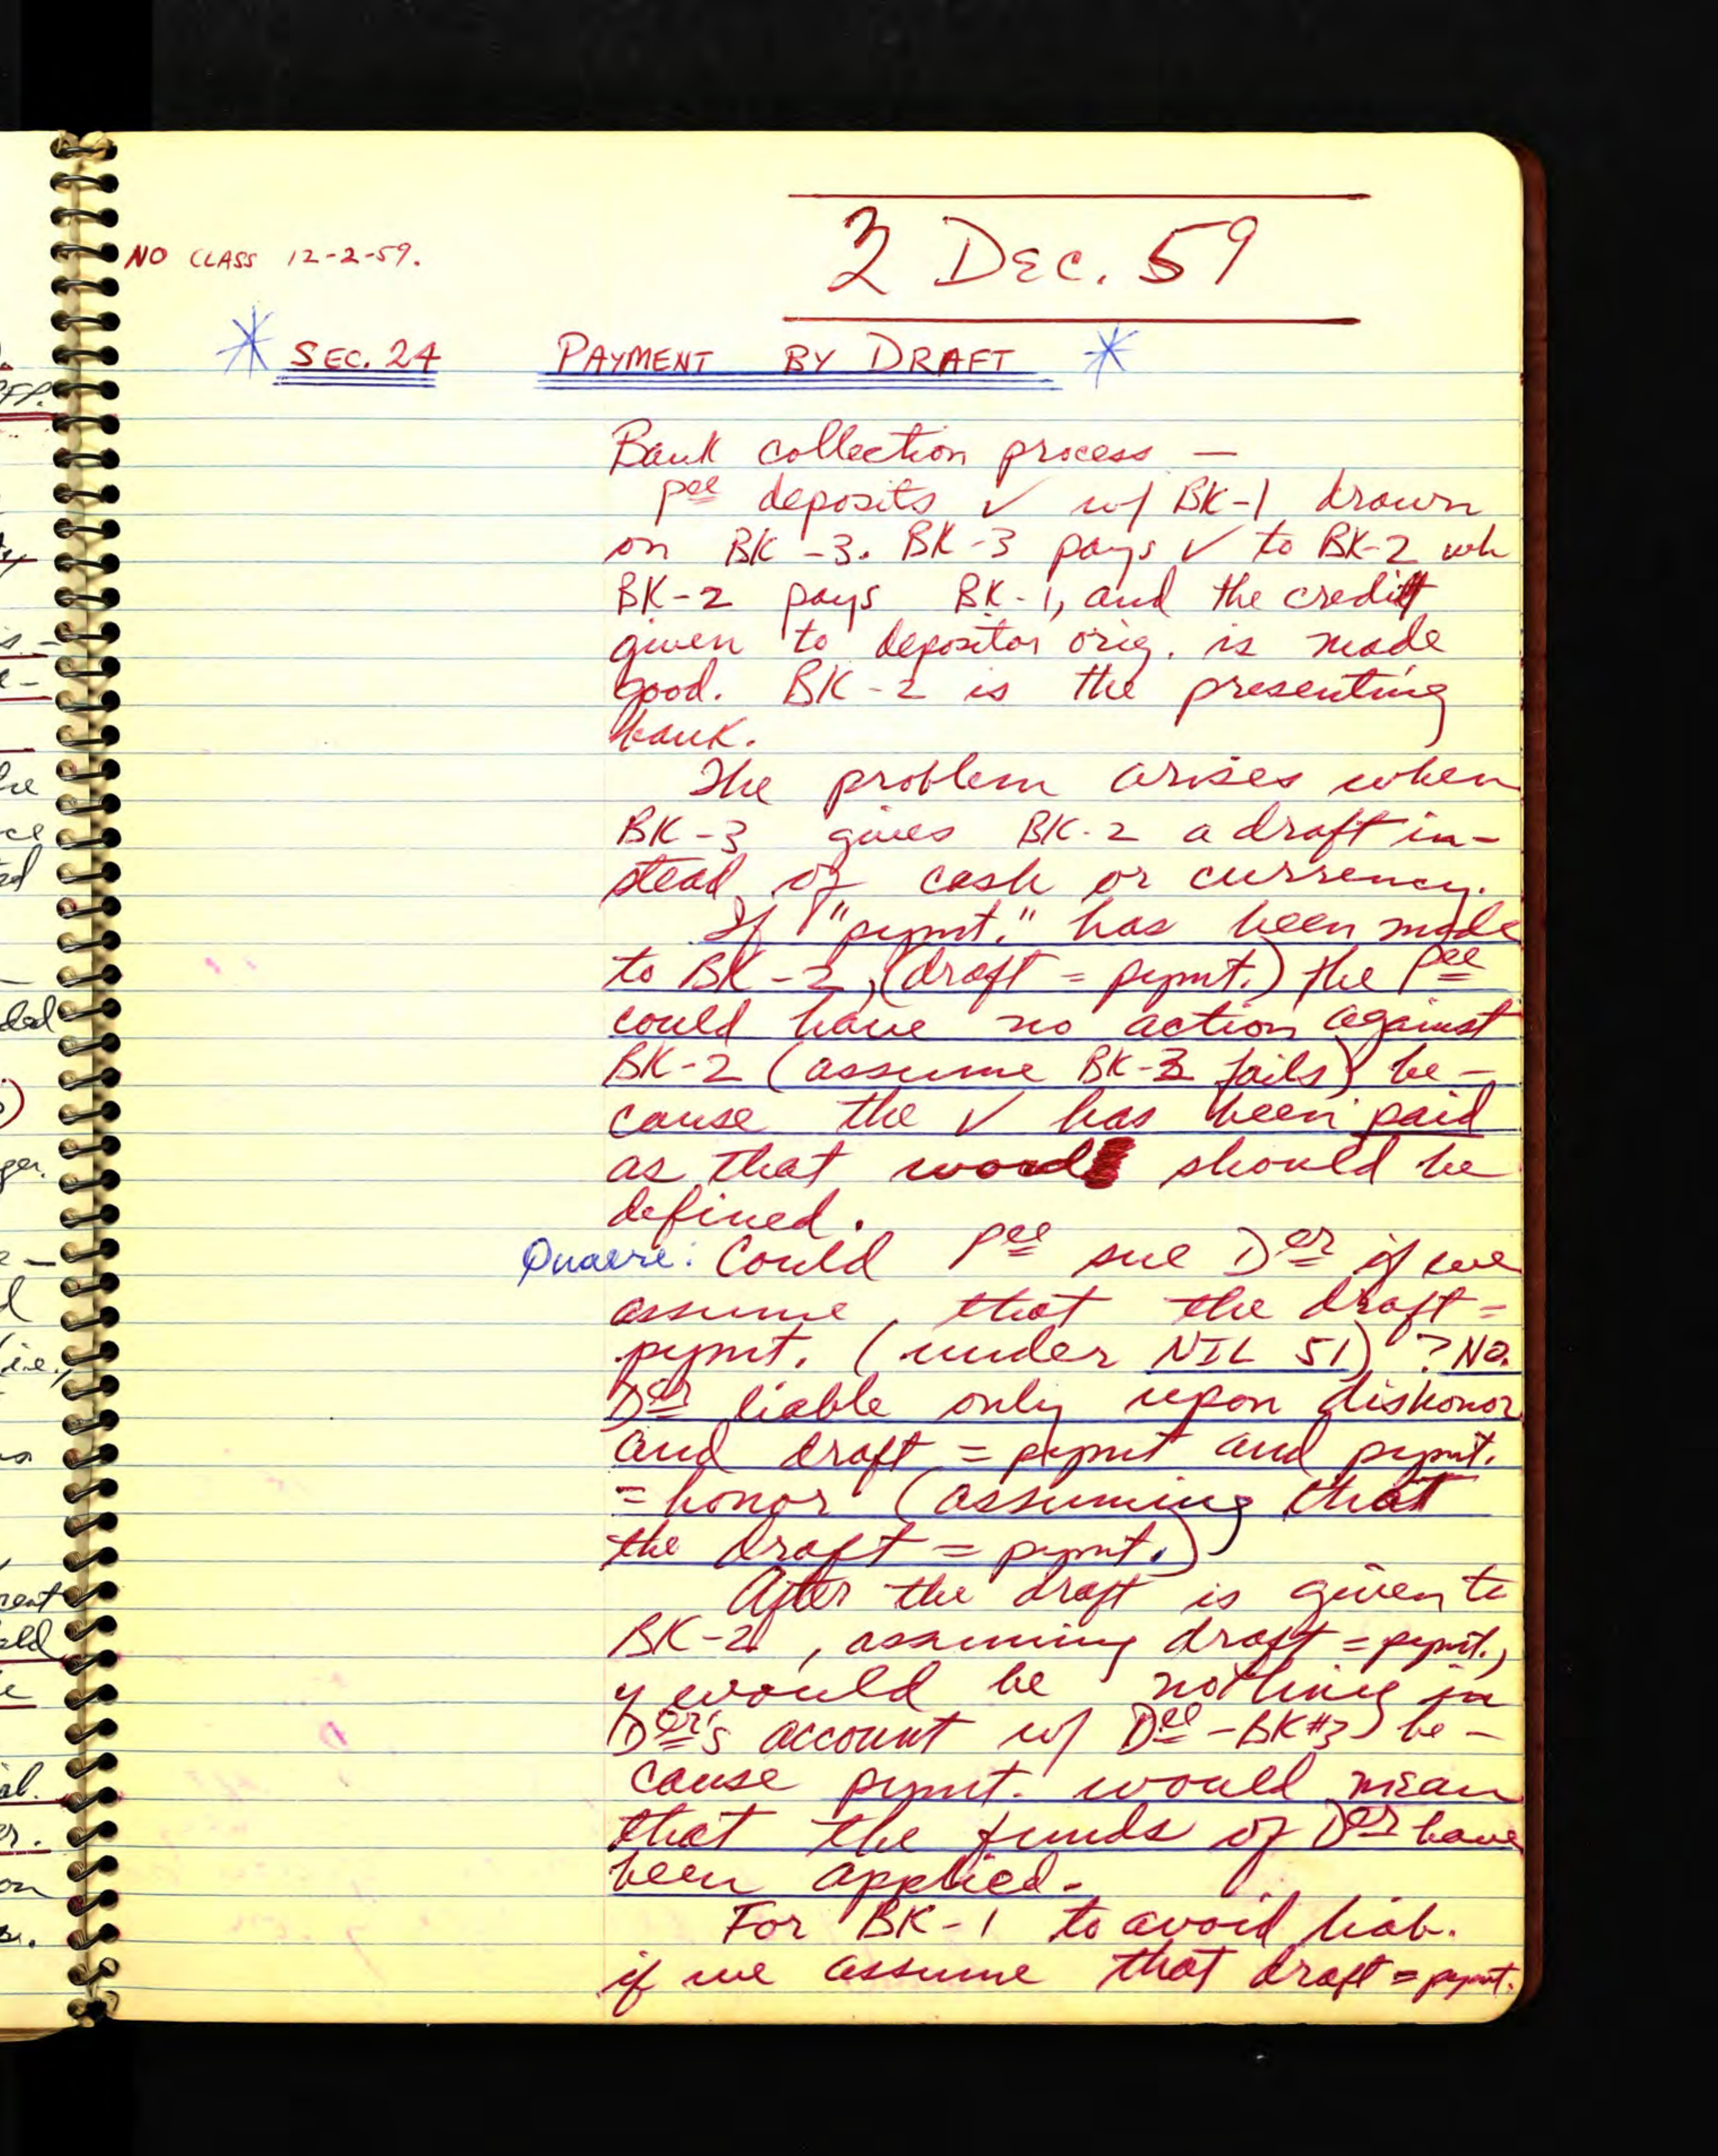 NO CLASS 12-2-59.
3 DEC. 59
* SEC. 24 PAYMENT BY DRAFT *
Bank collection process —
Pee deposits ✓ w/ BK-1 drawn
on BK-3. BK-3 pays ✓ to BK-2 wh
BK-2 pays BK-1, and the credit
given to depositor orig. is made
good. BK-2 is the presenting
bank.
The problem arises when
BK-3 gives BK-2 a draft in-
stead of cash or currency.
If "pymt." has been made
to BK-2, (draft = pymt.) the Pee
could have no action against
BK-2 (assume BK-3 fails) be-
cause the ✓ has been paid
as that word should be
defined.
Quaere: Could Pee sue Der if we
assume that the draft =
pymt. (under NIL 51)? No.
Der liable only upon dishonor
and draft = pymt and pymt.
= honor (assuming that
the draft = pymt.)
After the draft is given to
BK-2, assuming draft = pymt.,
y would be nothing in
Der's account w/ Dee-BK#3) be-
cause pymt. would mean
that the funds of Der have
been applied.
For BK-1 to avoid liab.
if we assume that draft = pymt.